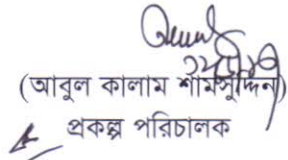 (আবুল কালাম শামসুদ্দিন)
প্রকল্প পরিচালক